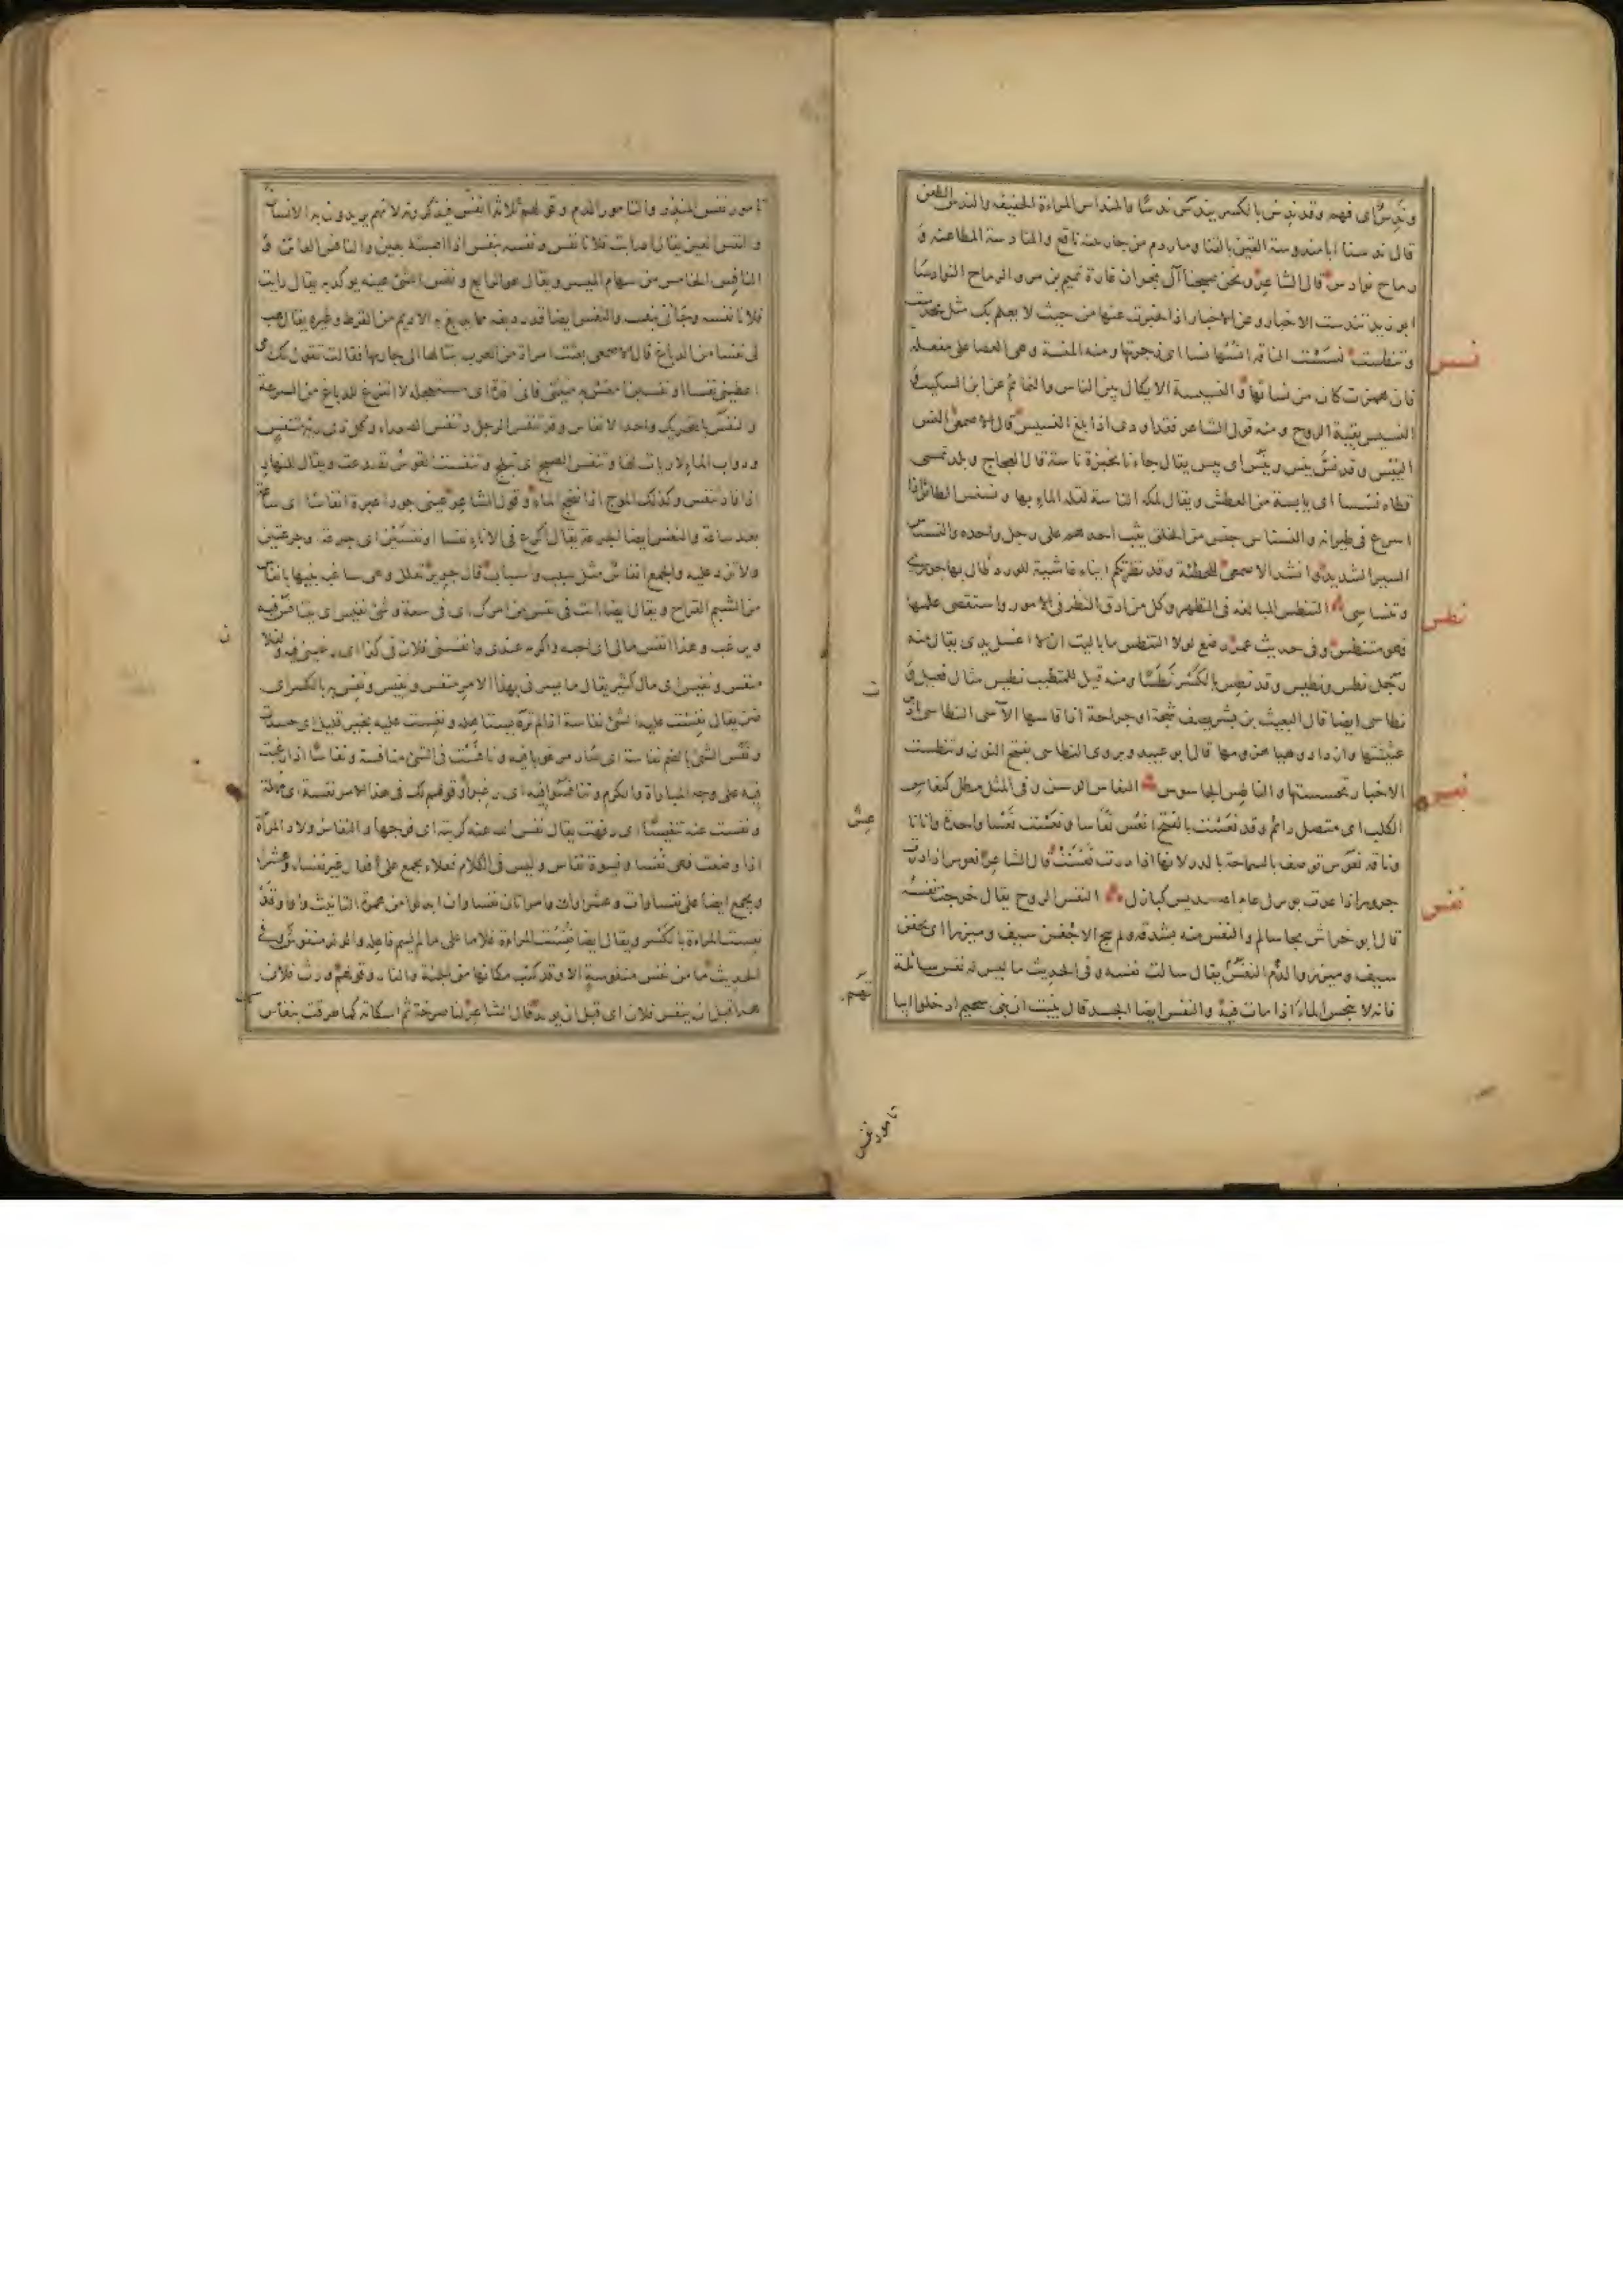 وندس أى فهم وقد ندس بالكسر يندس ندسا والمنداس المراءة الخفيفة والندس الطعن
قال ندسنا ابا مندوسة القين بالقنا وماردم من جار بيبة ناقع والمنادسة المطاعنة و
رماح نوادس قال الشاعر ونحن صبحنا آل نجران غارة تميم بن مر والرماح النوادسا
ابو زيد تندست الاخبار وعن الاخبار اذا تخبرت عنها من حيث لا يعلم بك مثل تحدست
وتنطست نسست الناقة انسها نسا اى زجرتها ومنه المنسة وهى العصا على مفعلة
نس
فان همزت كان من نساتها والنسيسة الايكال بين الناس والنسائس عن ابن السكيت
النسيس بقية الروح ومنه قول الشاعر فقد اودى اذا بلغ النسيس قال الاصمعى النس
اليبس وقد نس ينس وينس اى يبس يقال جاءنا بخبزة ناسة قال العجاج وبلد تمسى
قطاه نسسا اى يابسة من العطش ويقال لمكة الناسة لقلة الماء بها ونسنس الطائر اذا
اسرع فى طيرانه والنسناس جنس من الخلق يثب احدهم على رجل واحدة والنسناس
السير الشديد وانشد الاصمعى للحطئة وقد نظرتكم ايناء عاشية للورد طال بها حوزى
وتنساسى التنطس المبالغة فى التطهر وكل من ادق النظر فى الامور واستقصى علمها
نطس
فهو متنطس وفى حديث عمر رضع لولا التنطس ما باليت ان لا اغسل يدى يقال منه
رجل نطس ونطيس وقد نطس بالكسر نطسا ومنه قيل للمتطبب نطيس مثال فعيل و
نطاسى ايضا قال البعيث بن بشر يصف شجة او جراحة اذا قاسها الآسى النطاسى ادبرت
غثيثتها وازداد وهيا هزومها قال ابو عبيد ويروى النطاسى بفتح النون وتنطست
الاخبار تحسستها والناطس الجاسوس النعاس الوسن وفى المثل مطل كنعاس
نعس
الكلب اى متصل دائم وقد نعست بالفتح انعس نعاسا ونعست نعسة واحدة وانا ناعس
وناقة نعوس توصف بالسماحة بالدر لانها اذا درت نعست قال الشاعر نعوس اذا درت
جروز اذا غدت بويزل عام او سديس كبازل النفس الروح يقال خرجت نفسه
نفس
قال ابو خراش نجا سالم والنفس منه بشدقه ولم ينج الا جفن سيف ومئزرا اى بجفن
سيف ومئزر والدم النفس يقال سالت نفسه وفى الحديث ما ليس له نفس سائلة
فانه لا ينجس الماء اذا مات فيه والنفس ايضا الجسد قال نبئت ان بنى سحيم ادخلوا ابيا
تهم
تامور نفس
تامور نفس المنذر والتامور الدم وقولهم ثلاثة انفس فيذكرونه لانهم يريدون به الانسان
والنفس العين يقال اصابت فلانا نفس ونفسته بنفس اذا اصبته بعين والنافس العائن و
النافس الخامس من سهام الميسر ويقال هو الرابع ونفس الشئ عينه يؤكد به يقال رايت
فلانا نفسه وجاءنى بنفسه والنفس ايضا قدر دبغة مما يدبغ به الاديم من القرظ وغيره يقال هب
لى نفسا من الدباغ قال الاصمعى بعثت امراة من العرب بنتا لها الى جارتها فقالت تقول لك امى
اعطينى نفسا او نفسين امعس به منيئتى فانى افدة اى مستعجلة لا اتفرغ للدباغ من السرعة
والنفس بالتحريك واحد الانفاس وقد تنفس الرجل وتنفس الصعداء وكل ذى رئة متنفس
ودواب الماء لا رئات لها وتنفس الصبح اى تبلج وتنفست القوس تصدعت ويقال للنهار
اذا زاد تنفس وكذلك الموج اذا نضح الماء وقول الشاعر عينى جودا عبرة انفاسا اى ساعة
بعد ساعة والنفس ايضا الجرعة يقال اكرع فى الاناء نفسا او نفسين اى جرعة وجرعتين
ولا تزد عليه والجمع انفاس مثل سبب واسباب قال جرير تعلل وهى ساغبة بنيها بانفاس
من الشبم القراح ويقال ايضا انت فى نفس من امرك اى فى سعة وشئ نفيس اى يتنافس فيه
ويرغب وهذا انفس مالى اى احبه واكرمه عندى وانفسنى فلان فى كذا اى رغبنى فيه ولفلان
منفس ونفيس اى مال كثير يقال ما يسرنى بهذا الامر منفس ونفيس ونفس به بالكسر اى
ضن يقال نفست عليه الشئ نفاسة اذا لم تره يستاهله ونفست عليه بخير قليل اى حسدت
ونفس الشئ بالضم نفاسة اى صار مرغوبا فيه ونافست فى الشئ منافسة ونفاسا اذا رغبت
فيه على وجه المباراة والكرم وتنافسوا فيه اى رغبوا وقولهم لك فى هذا الامر نفسة اى مهلة
ونفست عنه تنفيسا اى رفهت يقال نفس الله عنه كربته اى فرجها والنفاس ولاد المرأة
اذا وضعت فهى نفساء ونسوة نفاس وليس فى الكلام فعلاء يجمع على فعال غير نفساء وعشراء
ويجمع ايضا على نفساوات وعشراوات وامراتان نفساوان ابدلوا من همزة التانيث واوا وقد
نفست المراءة بالكسر ويقال ايضا نفست المراءة غلاما على ما لم يسم فاعله والولد منفوس وفى
الحديث ما من نفس منفوسة الا وقد كتب مكانها من الجنة والنار وقولهم ورث فلان
هذا قبل ان ينفس فلان اى قبل ان يولد قال الشاعر لنا صرخة ثم اسكاتة كما طرقت بنفاس